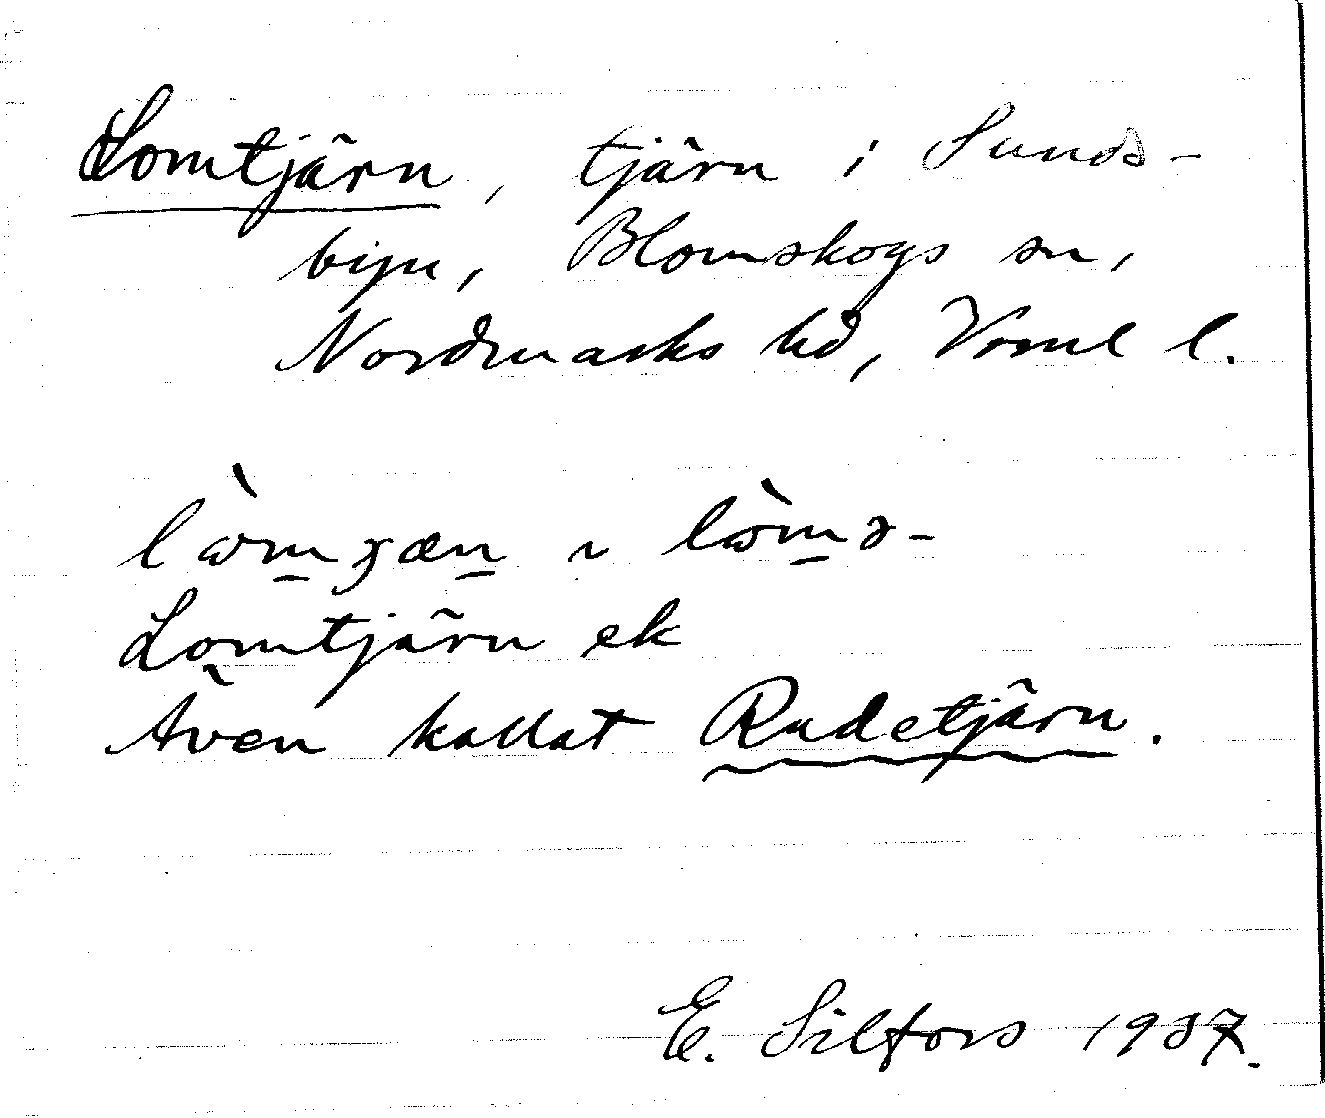 Lomtjärn, tjärn i Sunds-
byn, Blomskogs sn,
Nordmarks hd, Verml l.
Lomtjärn ek
Även kallat Rudetjärn.
E. Silfors 1937.